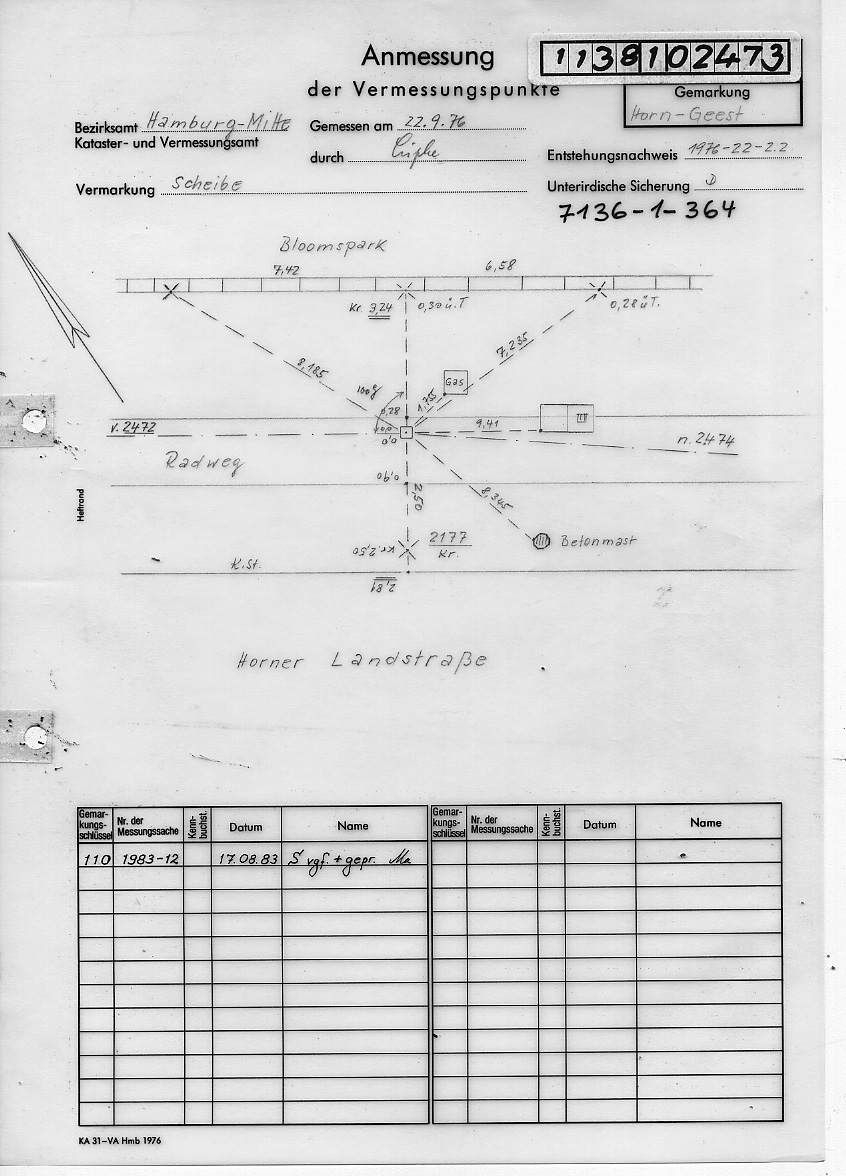 Anmessung
der Vermessungspunkte
1138102473
Gemarkung
Horn-Geest
Bezirksamt Hamburg-Mitte
Kataster- und Vermessungsamt
Gemessen am 22.9.76
durch
Entstehungsnachweis 1976-22-2.2
Vermarkung Scheibe
Unterirdische Sicherung
7136-1-364
Bloomspark
7,42
6,58
Kr. 3,24
0,30 ü.T
0,28 ü.T.
8,185
7,235
100g
Gas
1,755
0,28
v. 2472
0,0
9,41
n. 2474
Radweg
0,90
2,50
8,345
Heftrand
Kr. 2,50
2177
Kr.
Betonmast
K.St.
2,81
Horner Landstraße
Gemar-
kungs-
schlüssel
Nr. der
Messungssache
Kenn-
buchst.
Datum
Name
Gemar-
kungs-
schlüssel
Nr. der
Messungssache
Kenn-
buchst.
Datum
Name
110 1983-12 17.08.83 S vgf. + gepr. Ma
KA 31–VA Hmb 1976